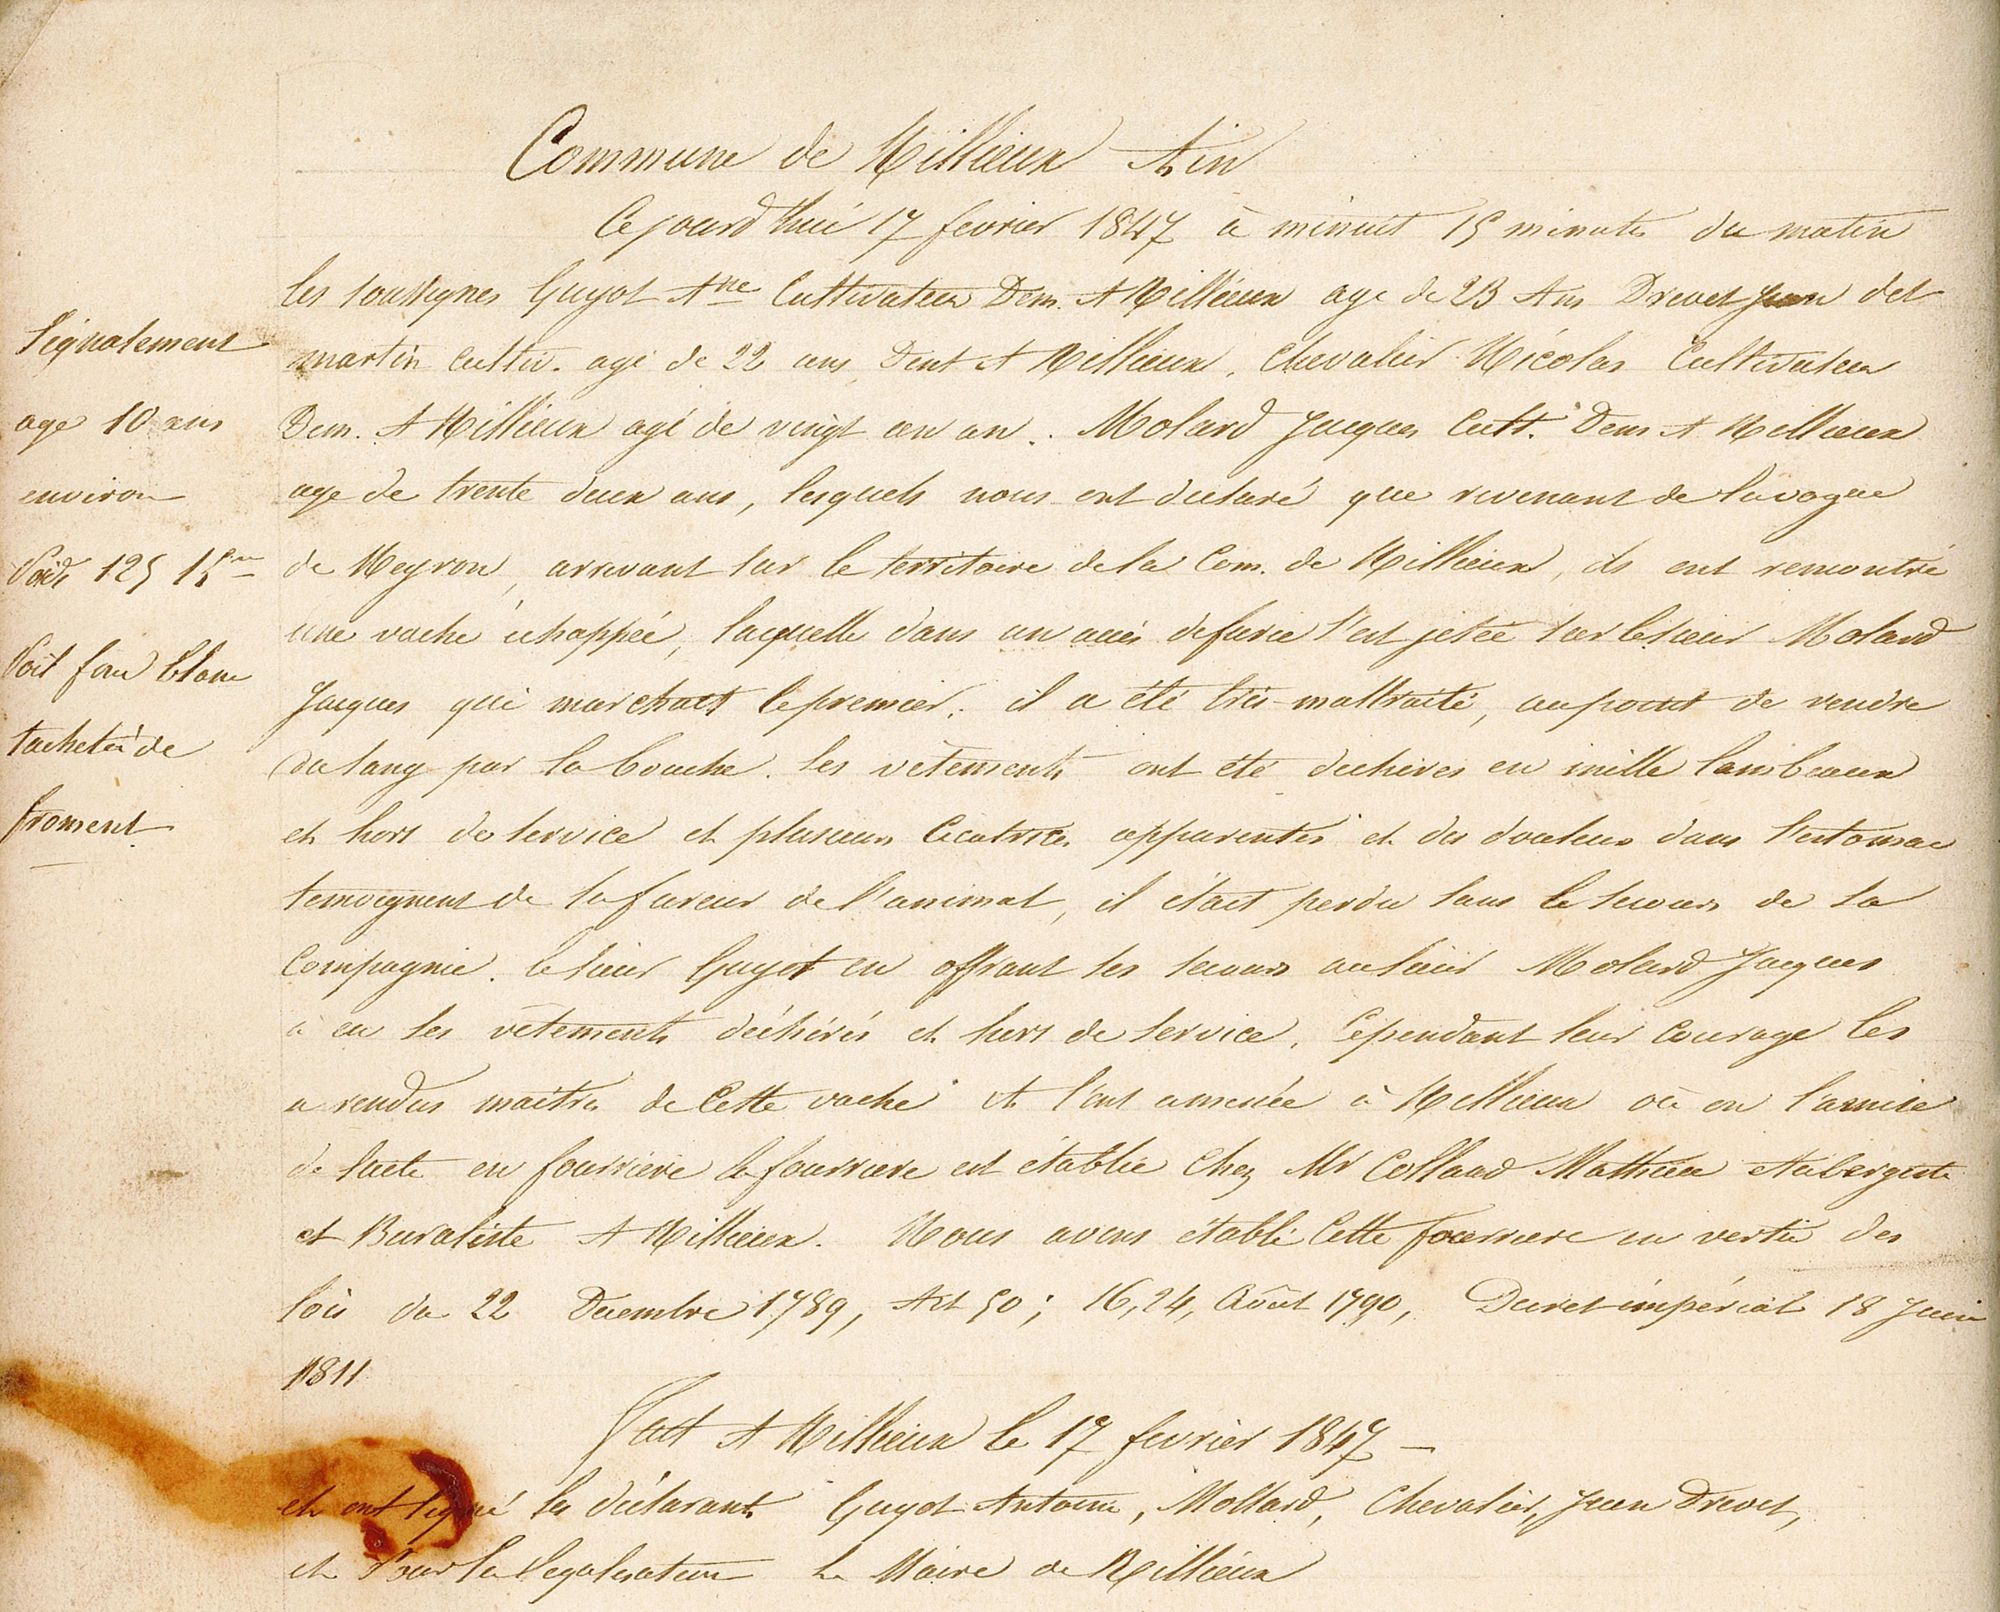 Commune de Rillieux Ain
Cejourd'hui 17 fevrier 1847 à minuit 15 minutes du matin
les soussignes Guyot Ane Cultivateur Dem. A Rillieux age de 23 Ans Drevet Jean det
martin Cultiv. agé de 22 ans Dent A Rillieux, Chevalier Nicolas Cultivateur
Dem. A Rillieux agé de vingt un an. Molard Jacques Cult. Dem A Rillieux
age de trente deux ans, lesquels nous ont declaré que revenant de la vogue
de Neyron, arrivant sur le territoire de la Com. de Rillieux, ils ont rencontré
une vache échappée, laquelle dans un accès de furie s'est jetée sur le sieur Molard
Jacques qui marchait le premier. il a été très-maltraité, au point de rendre
du sang par la bouche. ses vêtements ont été dechires en mille lambeaux
et hors de service et plusieurs Cicatrices apparentes et des douleurs dans l'estomac
temoignent de la fureur de l'animal, il était perdu sans le secours de la
Compagnie. le sieur Guyot en offrant ses secours au sieur Molard Jacques
a eu ses vêtements déchirés et hors de service. Cependant leur Courage les
a rendus maîtres de Cette vache et l'ont amenée à Rillieux où on l'a mise
de suite en fourriere la fourriere est établie Chez Mr Colland Mathieu Aubergiste
et Buraliste A Rillieux. Nous avons établi Cette fourriere en vertu des
lois du 22 Decembre 1789, Art 50; 16, 24, Août 1790, Decret impérial 18 Juin
1811
Fait A Rillieux le 17 fevrier 1847 —
et ont signé les déclarants Guyot Antoine, Mollard, Chevalier, Jean Drevet,
et Pour la legalisation Le Maire de Rillieux
Signalement
age 10 ans
environ
Poids 125
Poil fon blanc
tacheté de
froment